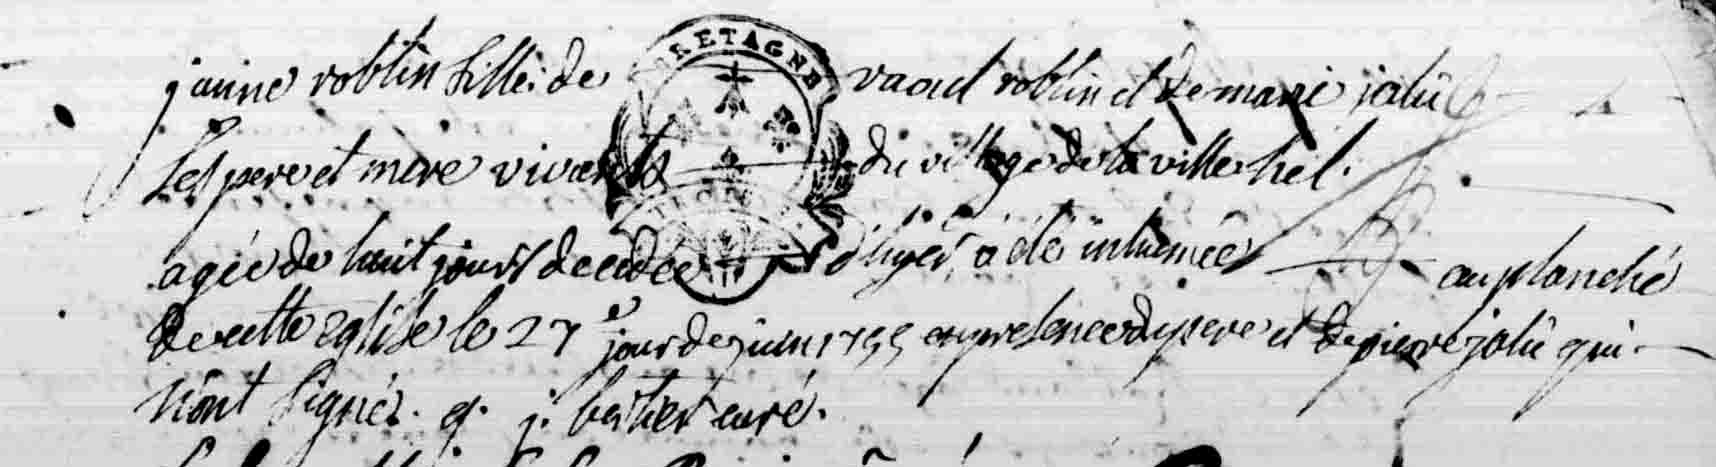 janne roblin fille de raoul roblin et de marie jalû
ses pere et mere vivants du village de la ville hel.
agée de huit jours decedée d'hyer a été inhumée au planché
de cette eglise le 27e jour de juin 1755 en presence du pere et de pierre jalû qui
n'ont signés. j. bertier curé.
BRETAGNE